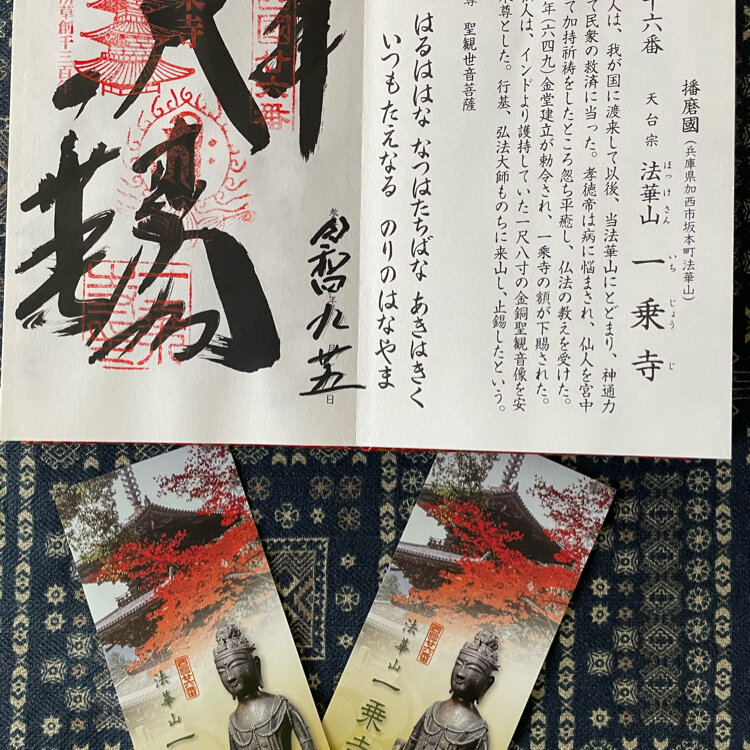 播磨國(兵庫県加西市坂本町法華山)
十六番 天台宗 法華山 一乗寺
ほっけさん いちじょうじ
人は、我が国に渡来して以後、当法華山にとどまり、神通力
で民衆の救済に当った。孝徳帝は病に悩まされ、仙人を宮中
て加持祈祷をしたところ忽ち平癒し、仏法の教えを受けた。
年(六四九)金堂建立が勅令され、一乗寺の額が下賜された。
人は、インドより護持していた一尺八寸の金銅聖観音像を安
尊とした。行基、弘法大師ものちに来山し、止錫したという。
尊 聖観世音菩薩
はるははな なつはたちばな あきはきく
いつもたえなる のりのはなやま
令和四年九月廿五日
國廿六番
乗寺
所草創千三百年
西国廿六番
法華山 一
西国廿六番
法華山 一乗寺